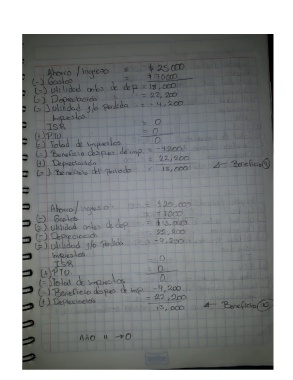 Ahorro / Ingreso = $25,000
(-) Gastos = $7000
(=) Utilidad antes de dep = 18,000
(-) Depreciación = 22,200
(=) Utilidad y/o Perdida = -4,200
Impuestos
ISR = 0
(+) PTU = 0
(=) Total de impuestos 0
(=) Beneficio despues de imp. = -4200
(+) Depreciación = 22,200
(=) Beneficio del periodo = 18,000 Beneficio
Ahorro / Ingreso = $20,000
(-) Gastos =
(=) Utilidad antes de dep =
(-) Depreciacion = 22,200
(=) Utilidad y/o Perdida = -9,200
Impuestos
ISR 0
(+) PTU 0
(=) Total de impuestos 0
(=) Beneficio despues de imp -9,200
(+) Depreciacion = 22,200
13,000 Beneficio